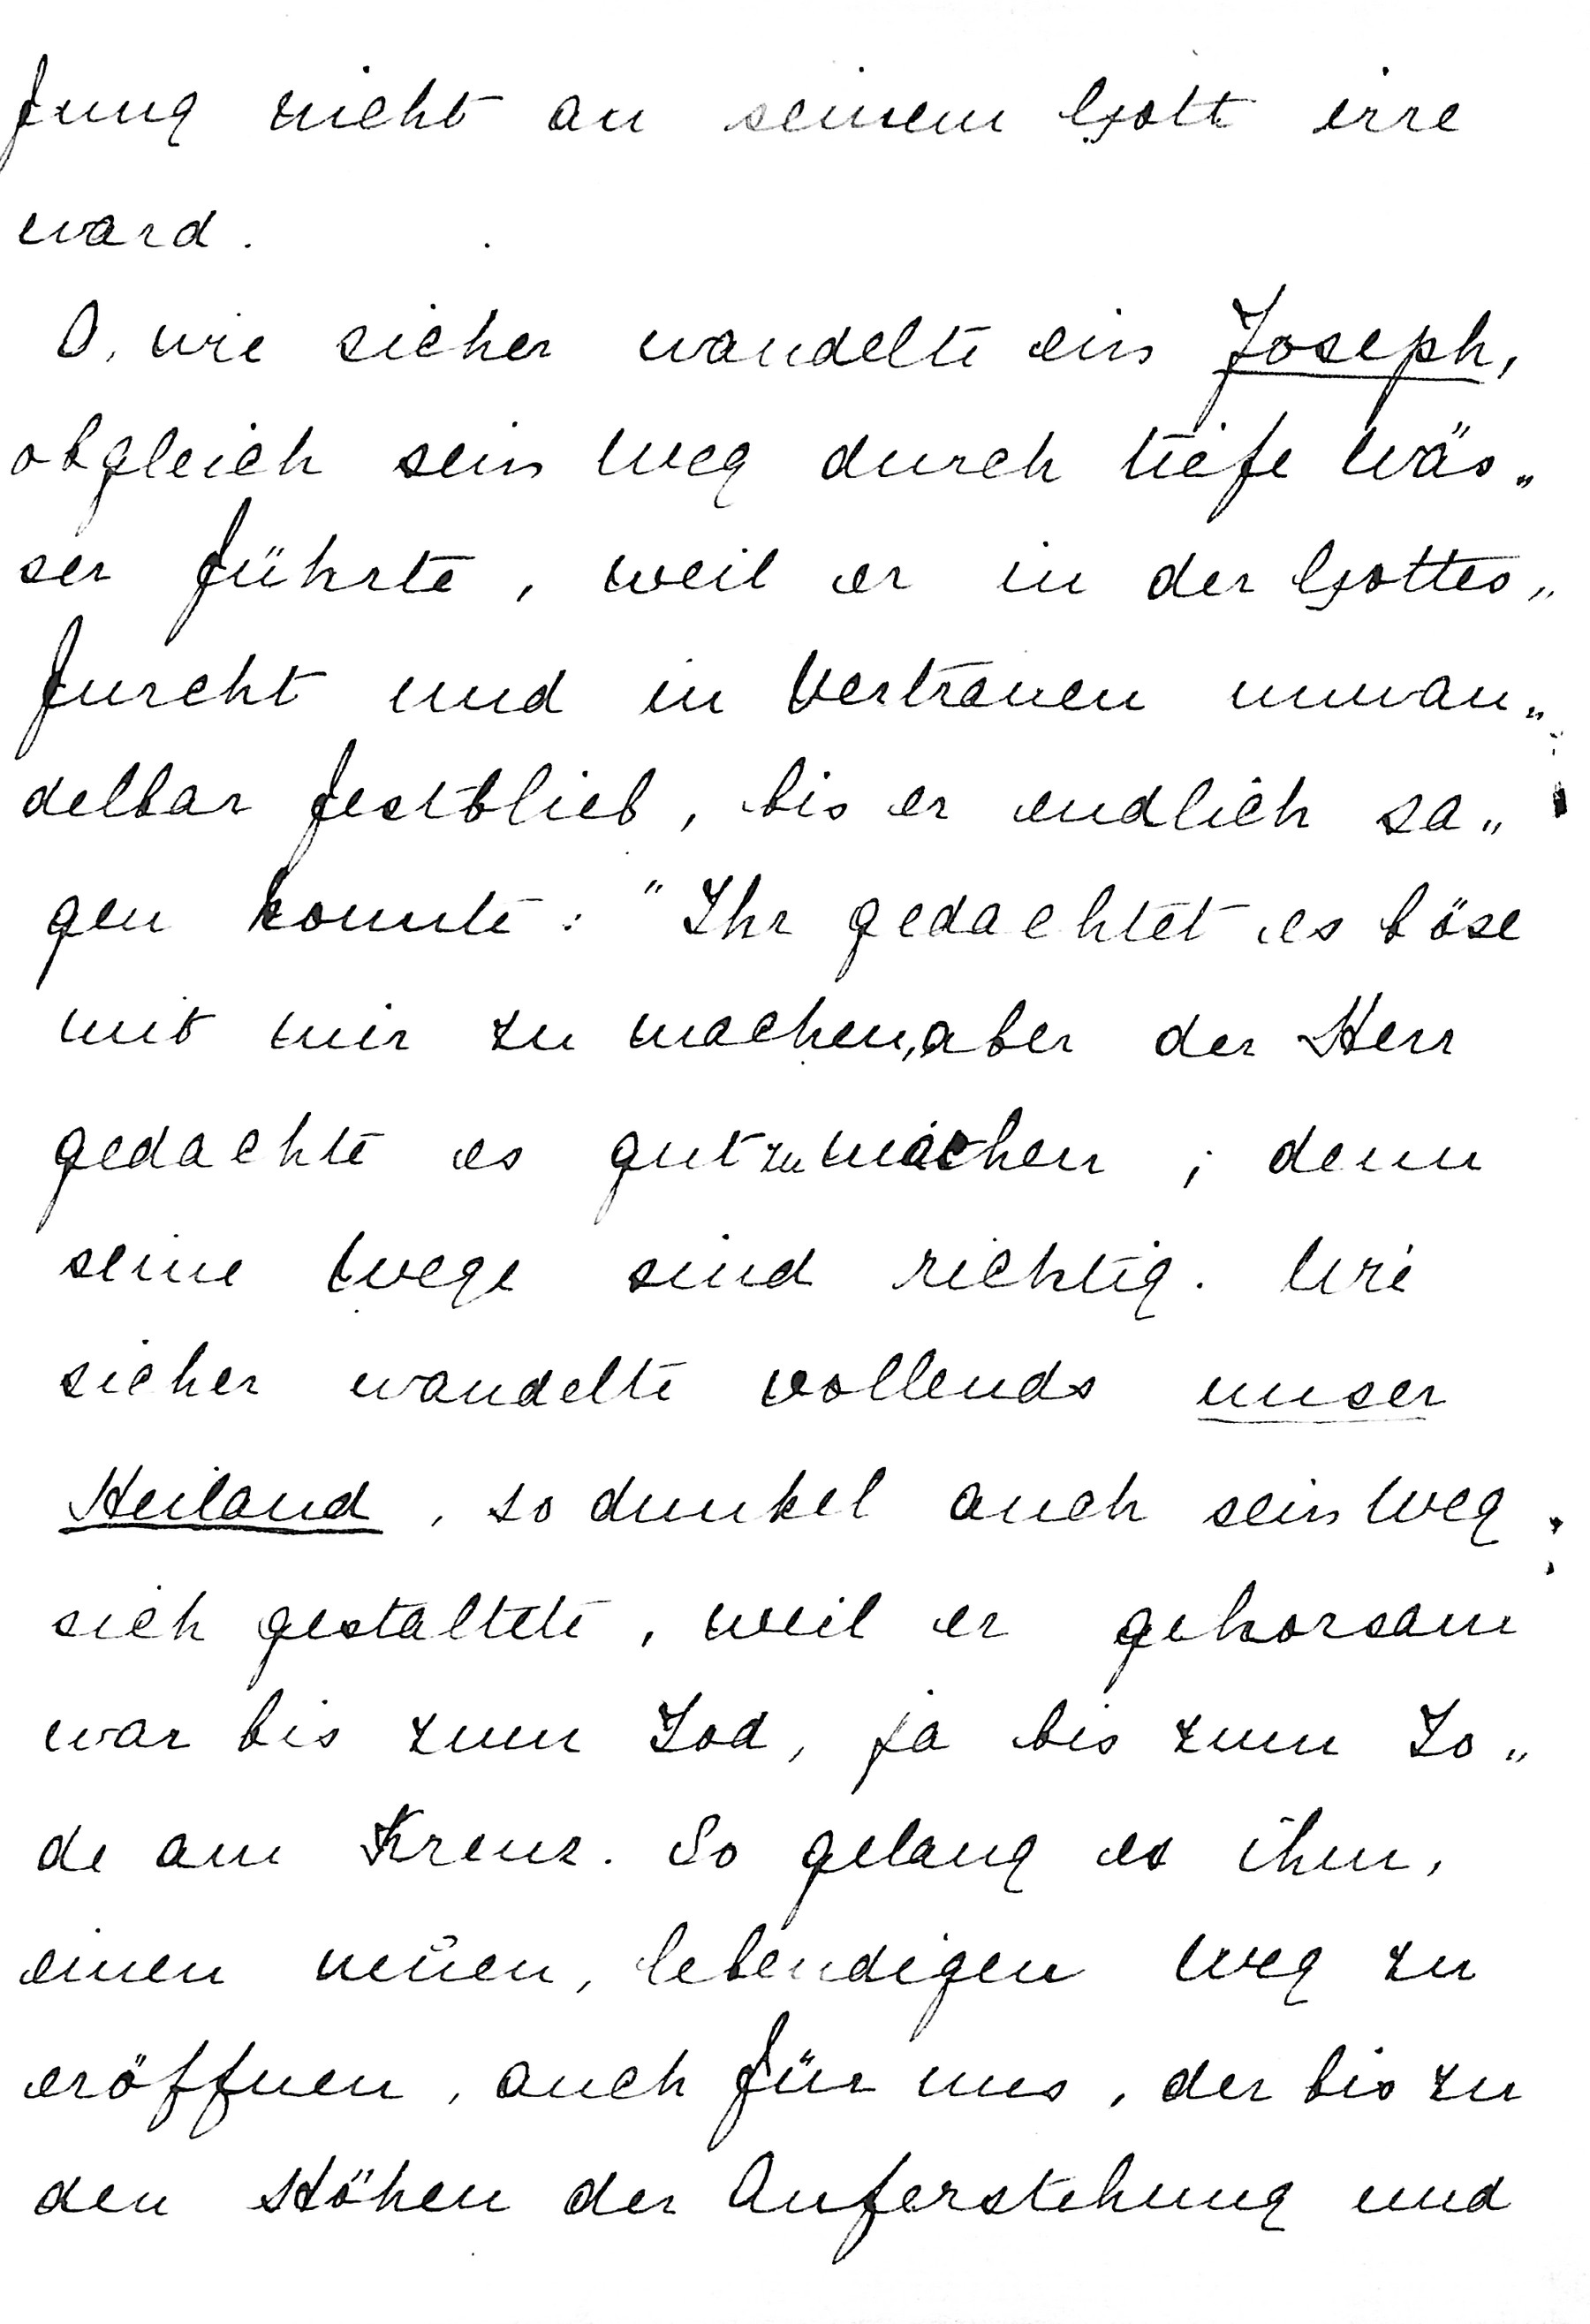 fung nicht an seinem Gott irre
ward.
O, wie sicher wandelte ein Joseph,
obgleich sein Weg durch tiefe Wäs„
ser führte, weil er in der Gottes„
furcht und in Vertrauen unwan„
delbar festblieb, bis er endlich sa„
gen konnte: "Ihr gedachtet es böse
mit mir zu machen, aber der Herr
gedachte es gut zu machen; denn
seine Wege sind richtig. Wie
sicher wandelte vollends unser
Heiland, so dunkel auch sein Weg
sich gestaltete, weil er gehorsam
war bis zum Tod, ja bis zum To„
de am Kreuz. So gelang es ihm,
einen neuen, lebendigen Weg zu
eröffnen, auch für uns, der bis zu
den Höhen der Auferstehung und